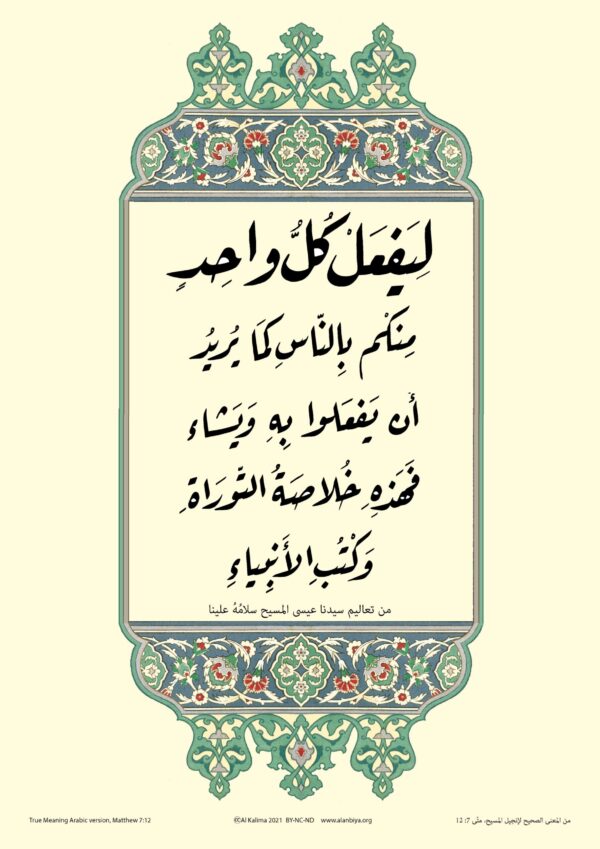 لِيَفعَلْ كُلُّ واحِدٍ
مِنكُم بِالنّاسِ كَمَا يُريدُ
أَن يَفعَلوا بِهِ وَيَشاء
فَهَذِهِ خُلاصَةُ التّورَاةِ
وَكُتُبِ الأَنبِياءِ
من تعاليم سيدنا عيسى المسيح سلامُهُ علينا
True Meaning Arabic version, Matthew 7:12
©Al Kalima 2021 BY-NC-ND www.alanbiya.org
من المعنى الصحيح لإنجيل المسيح، متّى 7: 12